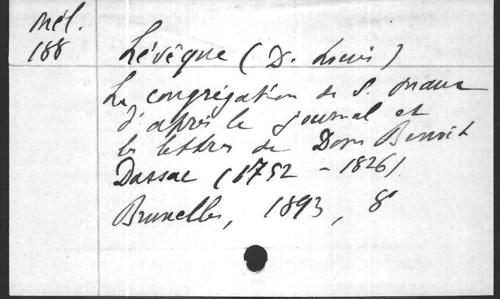 Mél.
188
Lévêque (D. Louis)
La congrégation de S. Maur
d'après le journal et
les lettres de Dom Benoît
Dassac (1752 - 1826).
Bruxelles, 1893, 8°